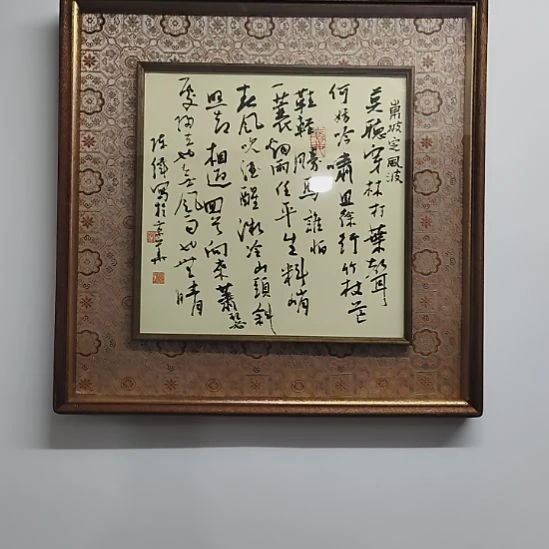 東坡定風波
莫聽穿林打葉聲
何妨吟嘯且徐行竹杖芒
鞋輕勝馬誰怕
一蓑烟雨任平生料峭
春風吹酒醒微冷山頭斜
照却相迎回首向來蕭瑟
處歸去也无風雨也無晴
陈偉写於京華